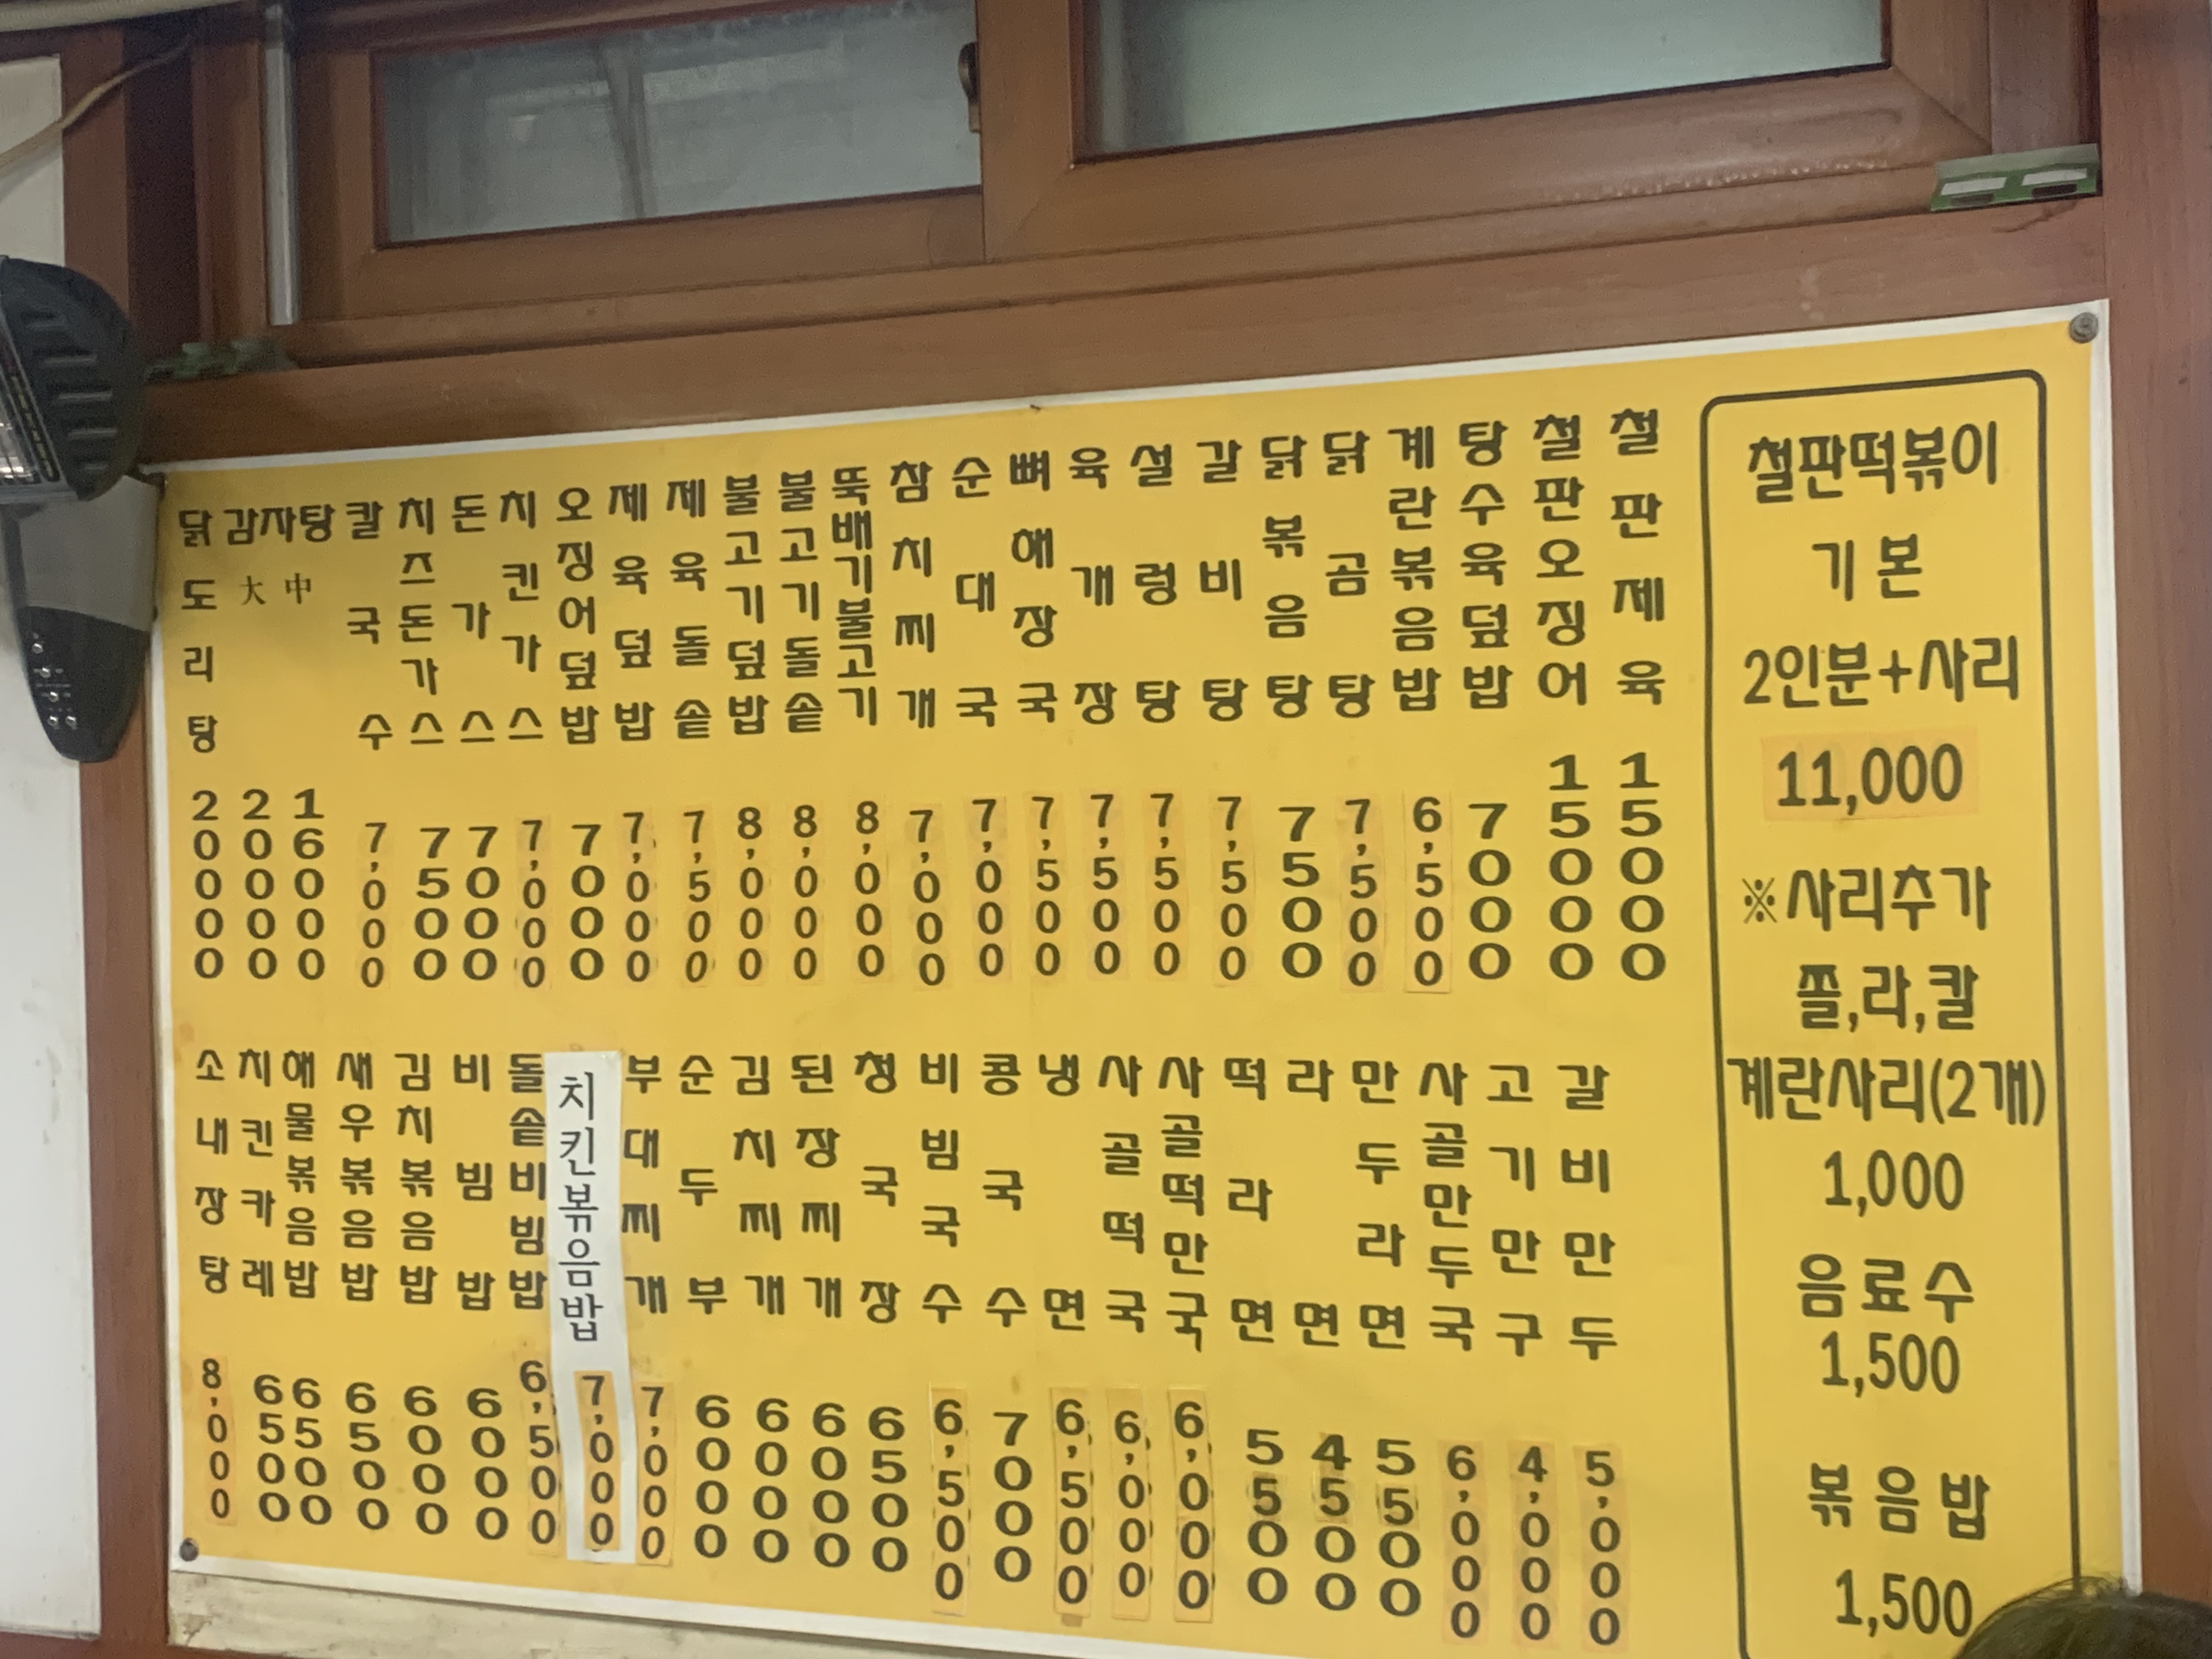 닭도리탕 20000
감자탕 大 20000
中 16000
칼국수 7,000
치즈돈가스 7500
돈가스 7000
치킨가스 7,000
오징어덮밥 7000
제육덮밥 7,000
제육돌솥 7,500
불고기덮밥 8,000
불고기돌솥 8,000
뚝배기불고기 8,000
참치찌개 7,000
순대국 7,000
뼈해장국 7,500
육개장 7,500
설렁탕 7,500
갈비탕 7,500
닭볶음탕 7500
닭곰탕 7,500
계란볶음밥 6,500
탕수육덮밥 7000
철판오징어 15000
철판제육 15000
소내장탕 8,000
치킨카레 6500
해물볶음밥 6500
새우볶음밥 6500
김치볶음밥 6000
비빔밥 6000
돌솥비빔밥 6,500
치킨볶음밥 7,000
부대찌개 7,000
순두부 6000
김치찌개 6000
된장찌개 6000
청국장 6500
비빔국수 6,500
콩국수 7000
냉면 6,500
사골떡국 6,000
사골떡만국 6,000
떡라면 5500
라면 4500
만두라면 5500
사골만두국 6,000
고기만구 4,000
갈비만두 5,000
철판떡볶이
기본
2인분+사리
11,000
※사리추가
쫄,라,칼
계란사리(2개)
1,000
음료수
1,500
볶음밥
1,500